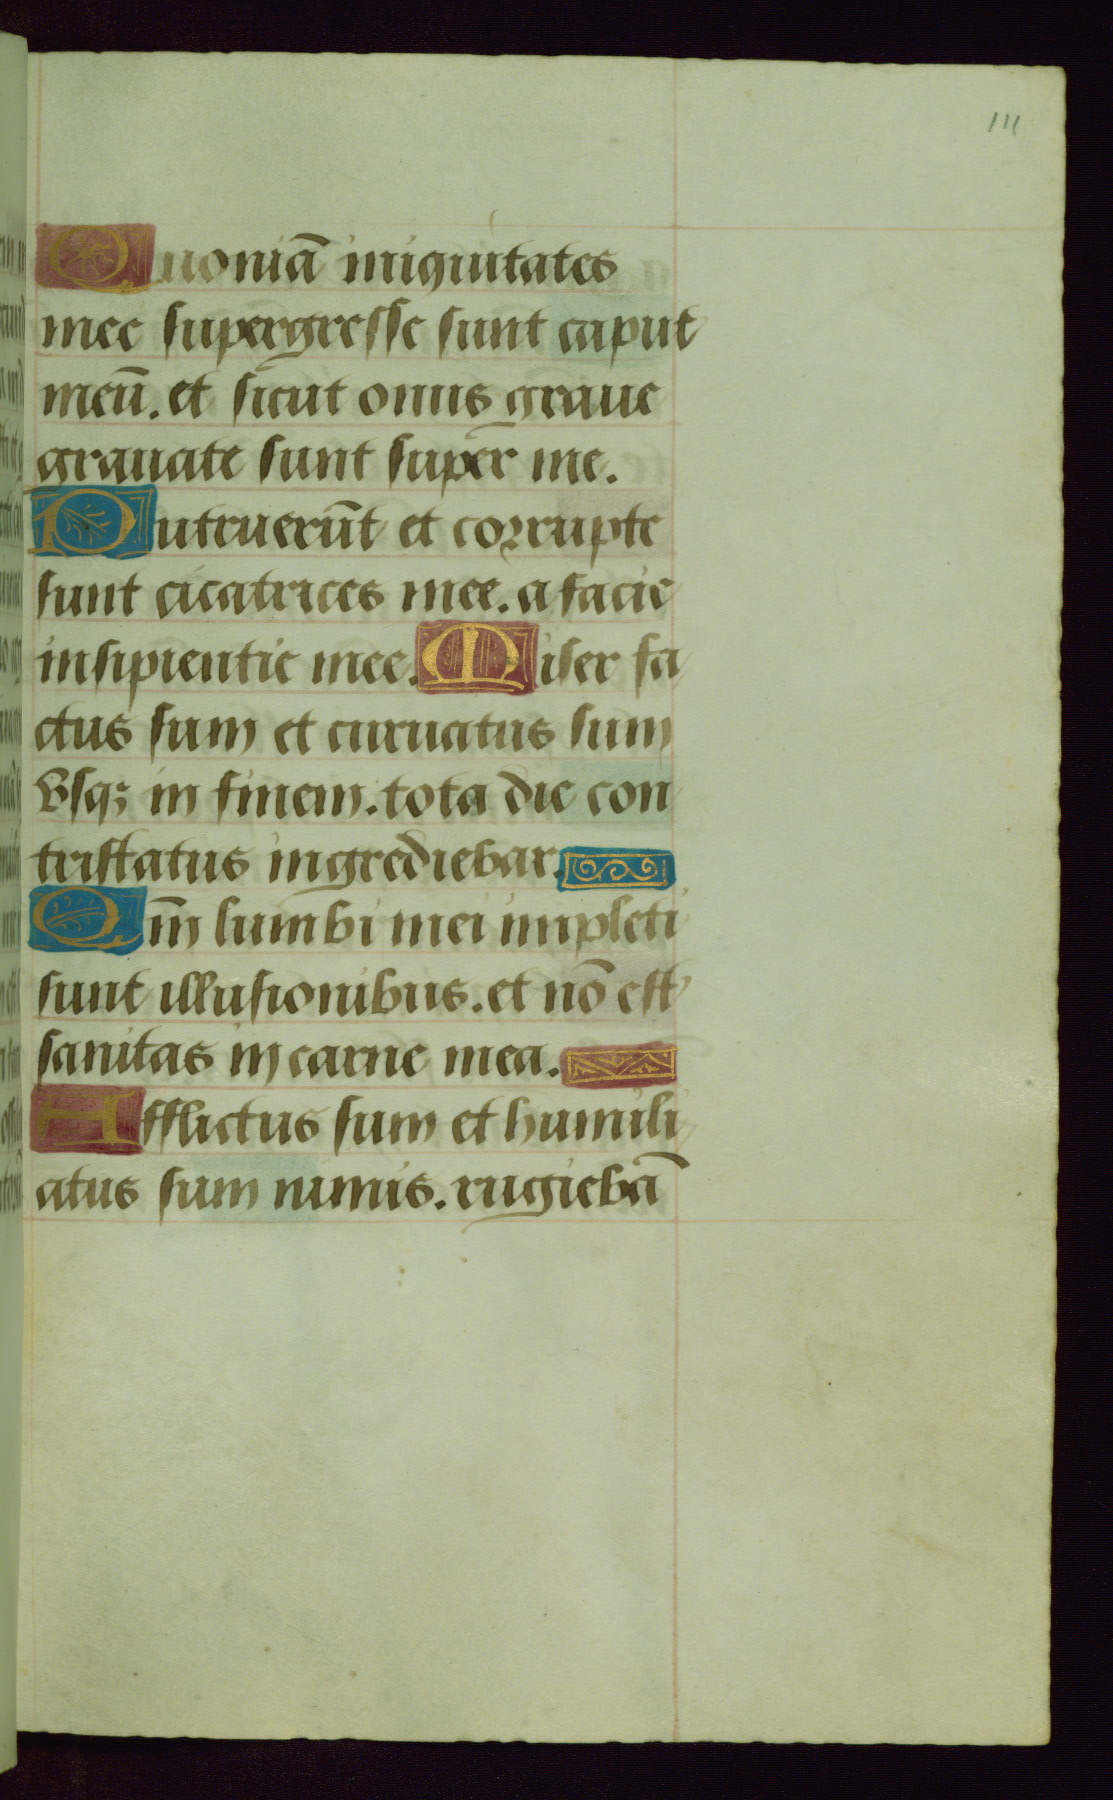 111
Quoniā iniquitates
mee supergresse sunt caput
meū. et sicut onus graue
grauate sunt super me.
Putruerūt et corrupte
sunt cicatrices mee. a facie
insipientie mee. Miser fa
ctus sum et curuatus sum
vsqꝫ in finem. tota die con
tristatus ingrediebar.
Qm̄ lumbi mei impleti
sunt illusionibus. et nō est
sanitas in carne mea.
Afflictus sum et humili
atus sum nimis. rugiebā